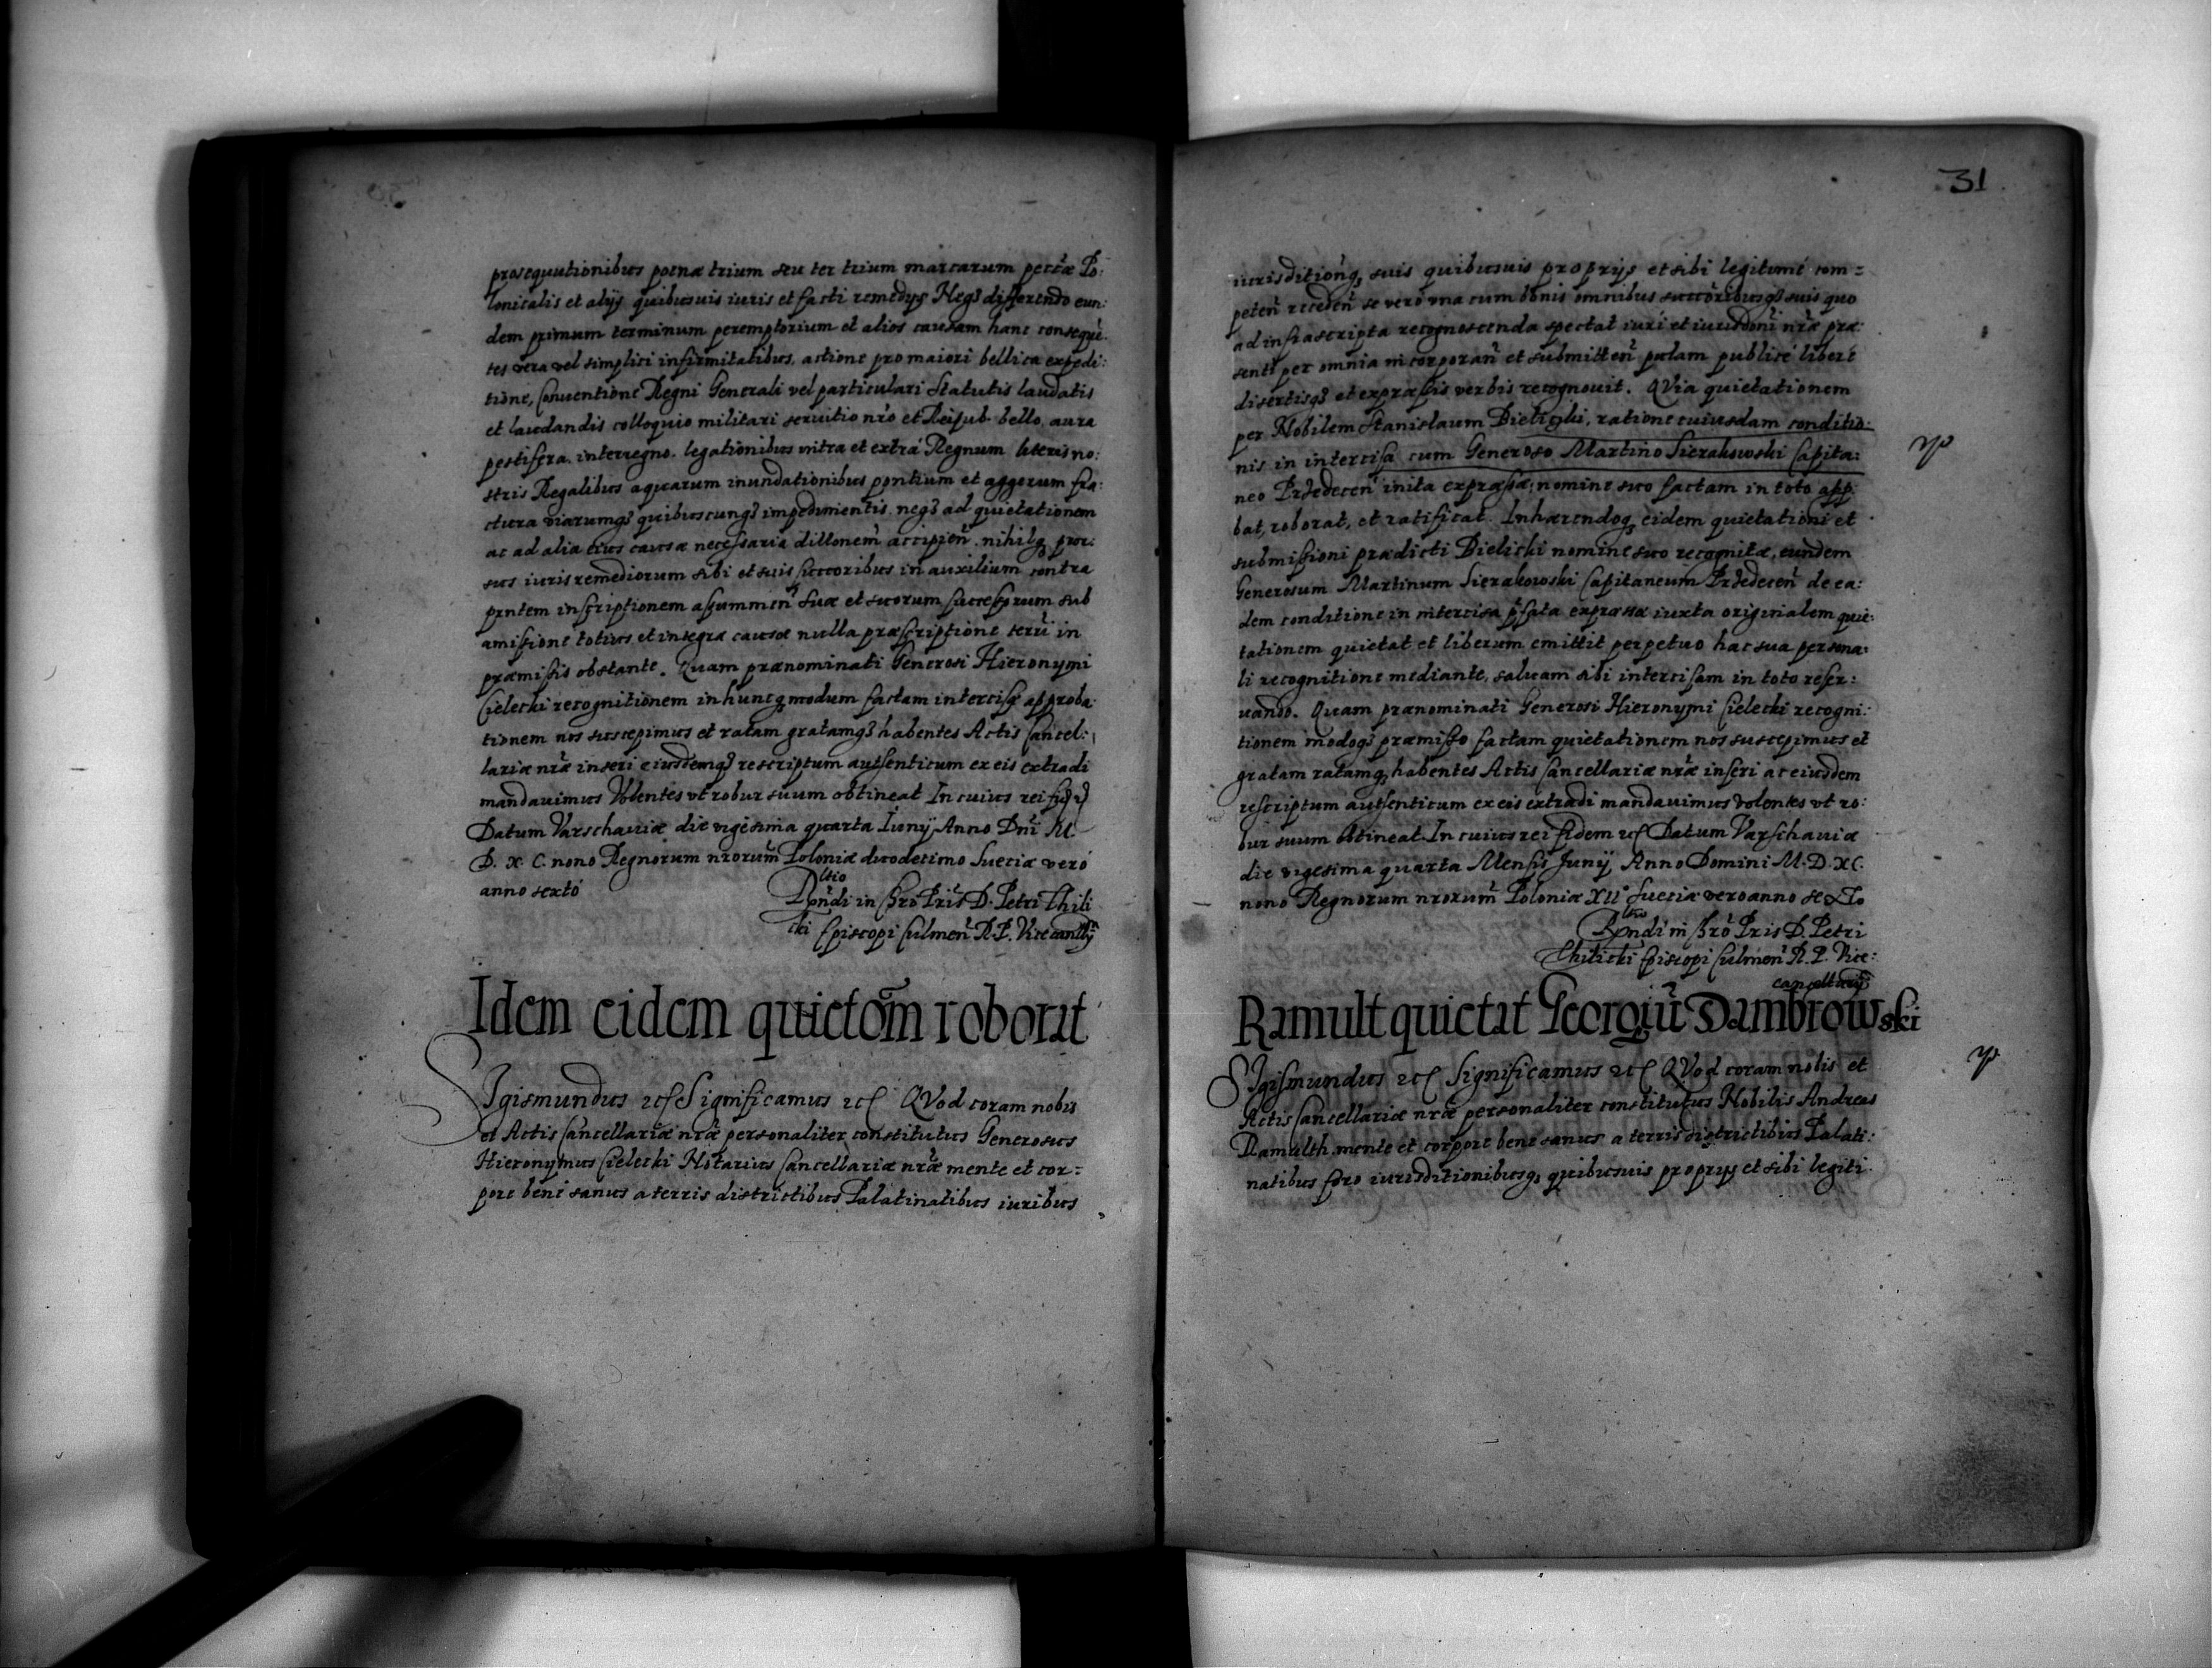 prosequutionibus poenæ trium seu ter trium marcarum pecūæ Po:
lonicalis et alijs quibusuis iuris et facti remedijs Neqȝ differendo eun:
dem primum terminum peremptorium et alios causam hanc consequē:
tes vera vel simplici infirmitatibus, actione pro maiori bellica expedi:
tione, Conuentione Regni Generali vel particulari Statutis laudatis
et laudandis colloquio militari seruitio nrō et Reipub. bello, aura
pestifera, interregno, legationibus intra et extrá Regnum literis no:
stris Regalibus aquarum inundationibus pontium et aggerum fra:
ctura viarumqȝ quibuscunqȝ impedimentis, neqȝ ad quietationem
ac ad alia eius causæ necessaria dillonem̄ accipien̄ nihilqȝ pror:
sus iuris remediorum sibi et suis succoribus in auxilium contra
pntem inscriptionem assummen̄ suæ et suorum successorum sub
amissione totius et integræ causæ nulla præscriptione terrū in
præmissis obstante. Quam prænominati Generosi Hieronymi
Cielecki recognitionem in huncqȝ modum factam intercisæ approba:
tionem nos suscepimus et ratam gratamqȝ habentes Actis Cancel:
lariæ nrāe inseri eiusdemqȝ rescriptum authenticum ex eis extradi
mandauimus Volentes vt robur suum obtineat In cuius rei fid
Datum Varschauiæ die vigesima quarta Iunij Anno Dnī M.
D. X C. nono Regnorum nrorum̄ Poloniæ duodecimo Sueciæ veró
anno sextó
Rltio
Rndi in Chrō Pris D. Petri Thili
cki Episcopi Culmen̄ R. P. Vicecancllrij
Idem eidem quietōm roborat
SIgismundus etc Significamus etc QVod coram nobis
et Actis Cancellariæ nrāe personaliter constitutus Generosus
Hieronymus Cielecki Notarius Cancellariæ nrāe mente et cor=
pore bene sanus a terris districtibus Palatinatibus iuribus
31
iurisditionqȝ suis quibusuis proprijs et sibi legitumé com=
peten̄ receden̄ se vero vna cum bonis omnibus succōribusqȝ suis quo
ad infrascripta recognoscenda spectat iurí et iurisdonī nrāe præ:
senti per omnia incorporan̄ et submitten̄ palam publicé liberé
disertisqȝ et expræssis verbis recognouit. QVia quietationem
per Nobilem Stanislaum Bieliczki, ratione cuiusdam conditio:
nis in intercisa cum Generoso Martino Sierakowski Capita:
neo Przedecen̄ inita expræssæ, nomine suo factam in toto app:
bat, roborat, et ratificat. Inhærendoqȝ eidem quietationi et
submissioni prædicti Bielicki nomine suo recognitæ, eundem
Generosum Martinum Sierakowski Capitaneum Przedecen̄ de ea:
dem conditione in intercisa p̄fata expræssa iuxta originalem quie:
tationem quietat et liberum emittit perpetuo hac sua persona:
li recognitione mediante, saluam sibi intercisam in toto reser:
uando. Quam prænominati Generosi Hieronymi Cielecki recogni:
tionem modoqȝ præmisso factam quietationem nos suscepimus et
gratam ratamqȝ habentes Actis Cancellariæ nrāe inseri ac eiusdem
rescriptum authenticum ex eis extradi mandauimus volentes vt ro:
bur suum obtineat In cuius rei fidem etc Datum Varschauiæ
die vigesima quarta Mensis Junij Anno Domini M. D. XC.
nono Regnorum nrorum̄ Poloniæ XII° Sueciæ vero anno sexto
Rltio
Rndi in Chrō Pris D. Petri
Thilicki Episcopi Culmen̄ R. P. Vice:
cancellarij
Ramult quietat Georgiū Dambrowski
SIgismundus etc Significamus etc QVod coram nobis et
Actis Cancellariæ nrāe personaliter constitutus Nobilis Andreas
Ramulth mente et corpore bene sanus a terris districtibus Palati:
natibus foro iurisditionibusqȝ quibusuis proprijs et sibi legiti